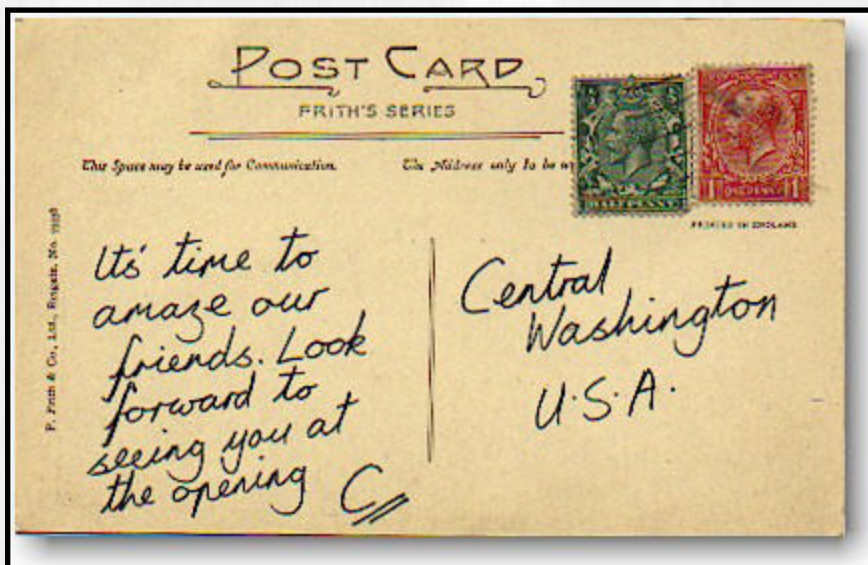 POST CARD
FRITH'S SERIES
This Space may be used for Communication.
The Address only to be
HALFPENNY
1 ONE PENNY 1
PRINTED IN ENGLAND
F. Frith & Co., Ltd., Reigate. No.
Its' time to
amaze our
friends. Look
forward to
seeing you at
the opening
C
Central
Washington
U.S.A.